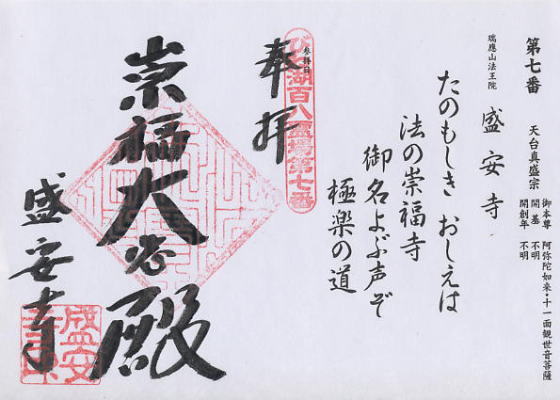 第七番
天台真盛宗
御本尊 阿弥陀如来・十一面観世音菩薩
開基 不明
開創年 不明
瑞應山法王院
盛安寺
たのもしき おしえは
法の崇福寺
御名よぶ声ぞ
極楽の道
参拝日
びわ湖百八霊場第七番
奉拝
崇福大悲殿
盛安寺
盛安